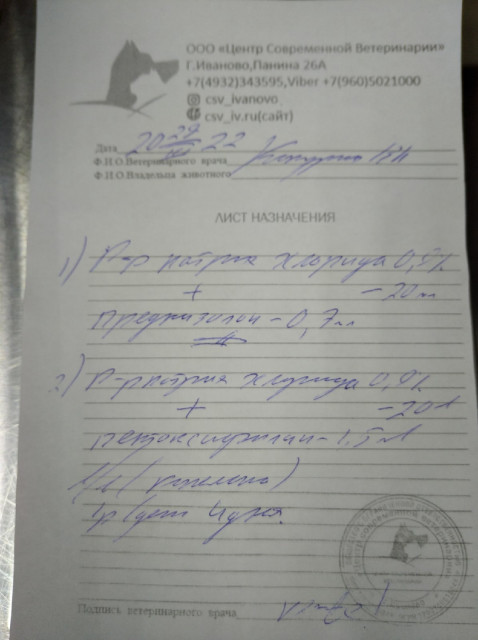 ООО «Центр Современной Ветеринарии»
Г.Иваново,Панина 26А
+7(4932)343595,Viber +7(960)5021000
csv_ivanovo
csv_iv.ru(сайт)
Дата 20 22
Ф.И.О.Ветеринарного врача
Ф.И.О.Владельца животного
ЛИСТ НАЗНАЧЕНИЯ
1) Р-р натрия хлорида 0,9%
+ - 20 мл
преднизолон - 0,7 мл
2) Р-р натрия хлорида 0,9%
+ - 20
пентоксифиллин - 1,5 мл
в/в (капельно)
1р/день 4 дня.
Подпись ветеринарного врача